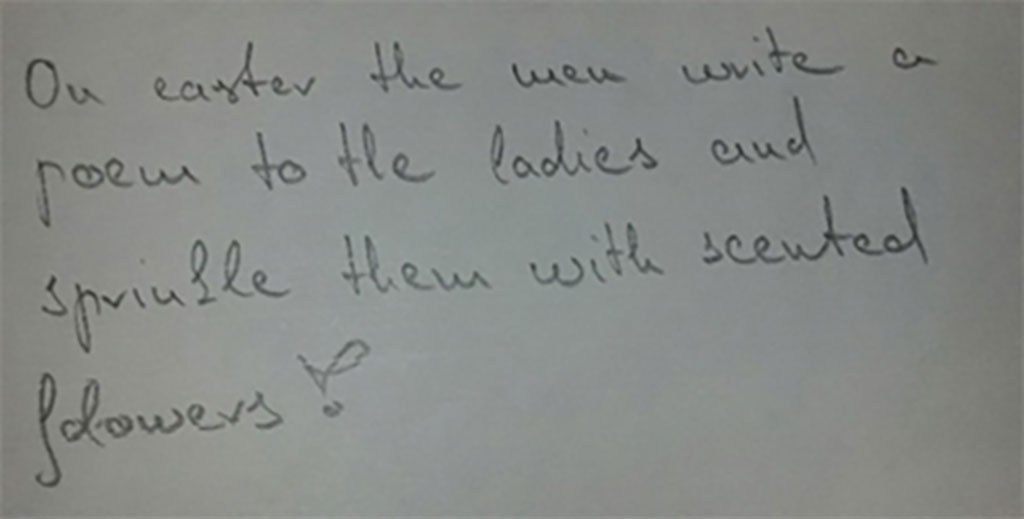 On easter the men write a
poem to the ladies and
sprinkle them with scented
flowers!